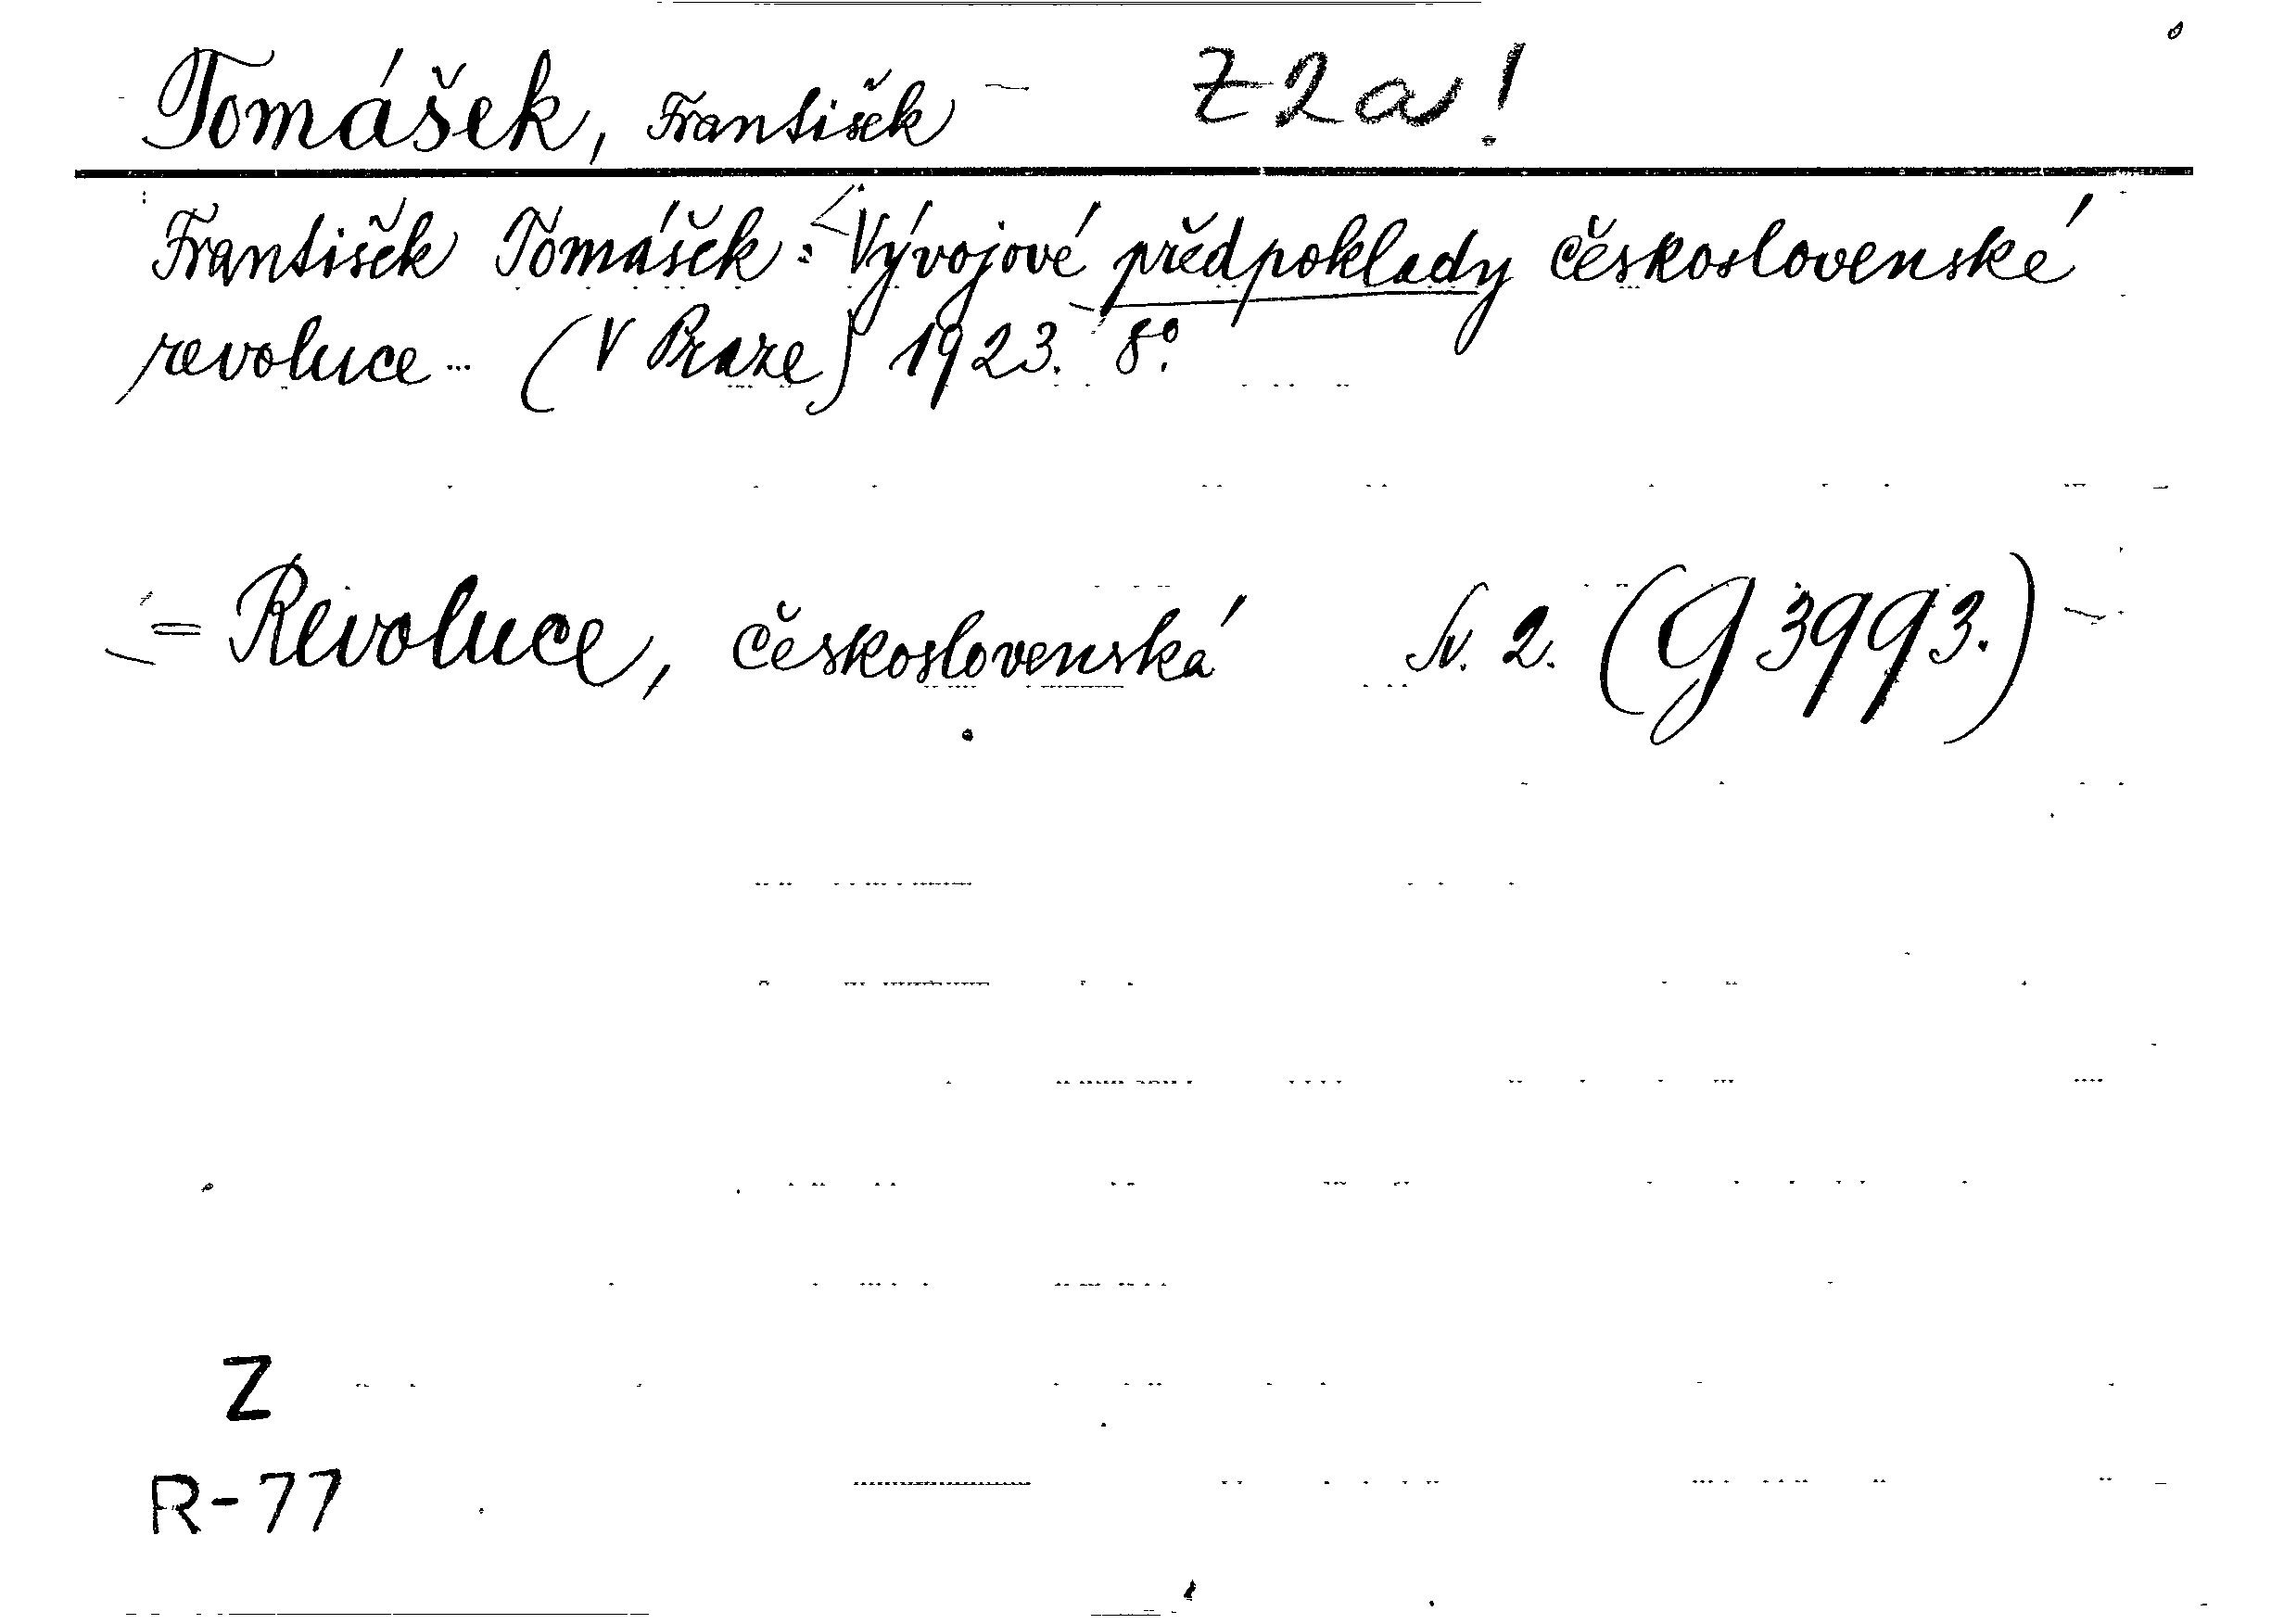 Tomášek, František Z2a!
František Tomášek: Vývojové předpoklady československé
revoluce... (V Praze) 1923. 8°.
= Revoluce, československá Sv. 2. (G 3993.)
Z
R-77